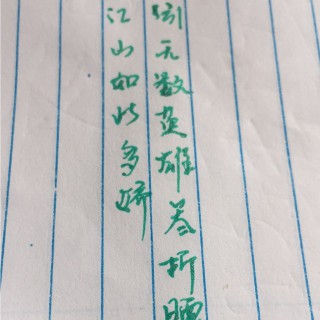 江山如此多娇
引无数英雄竞折腰